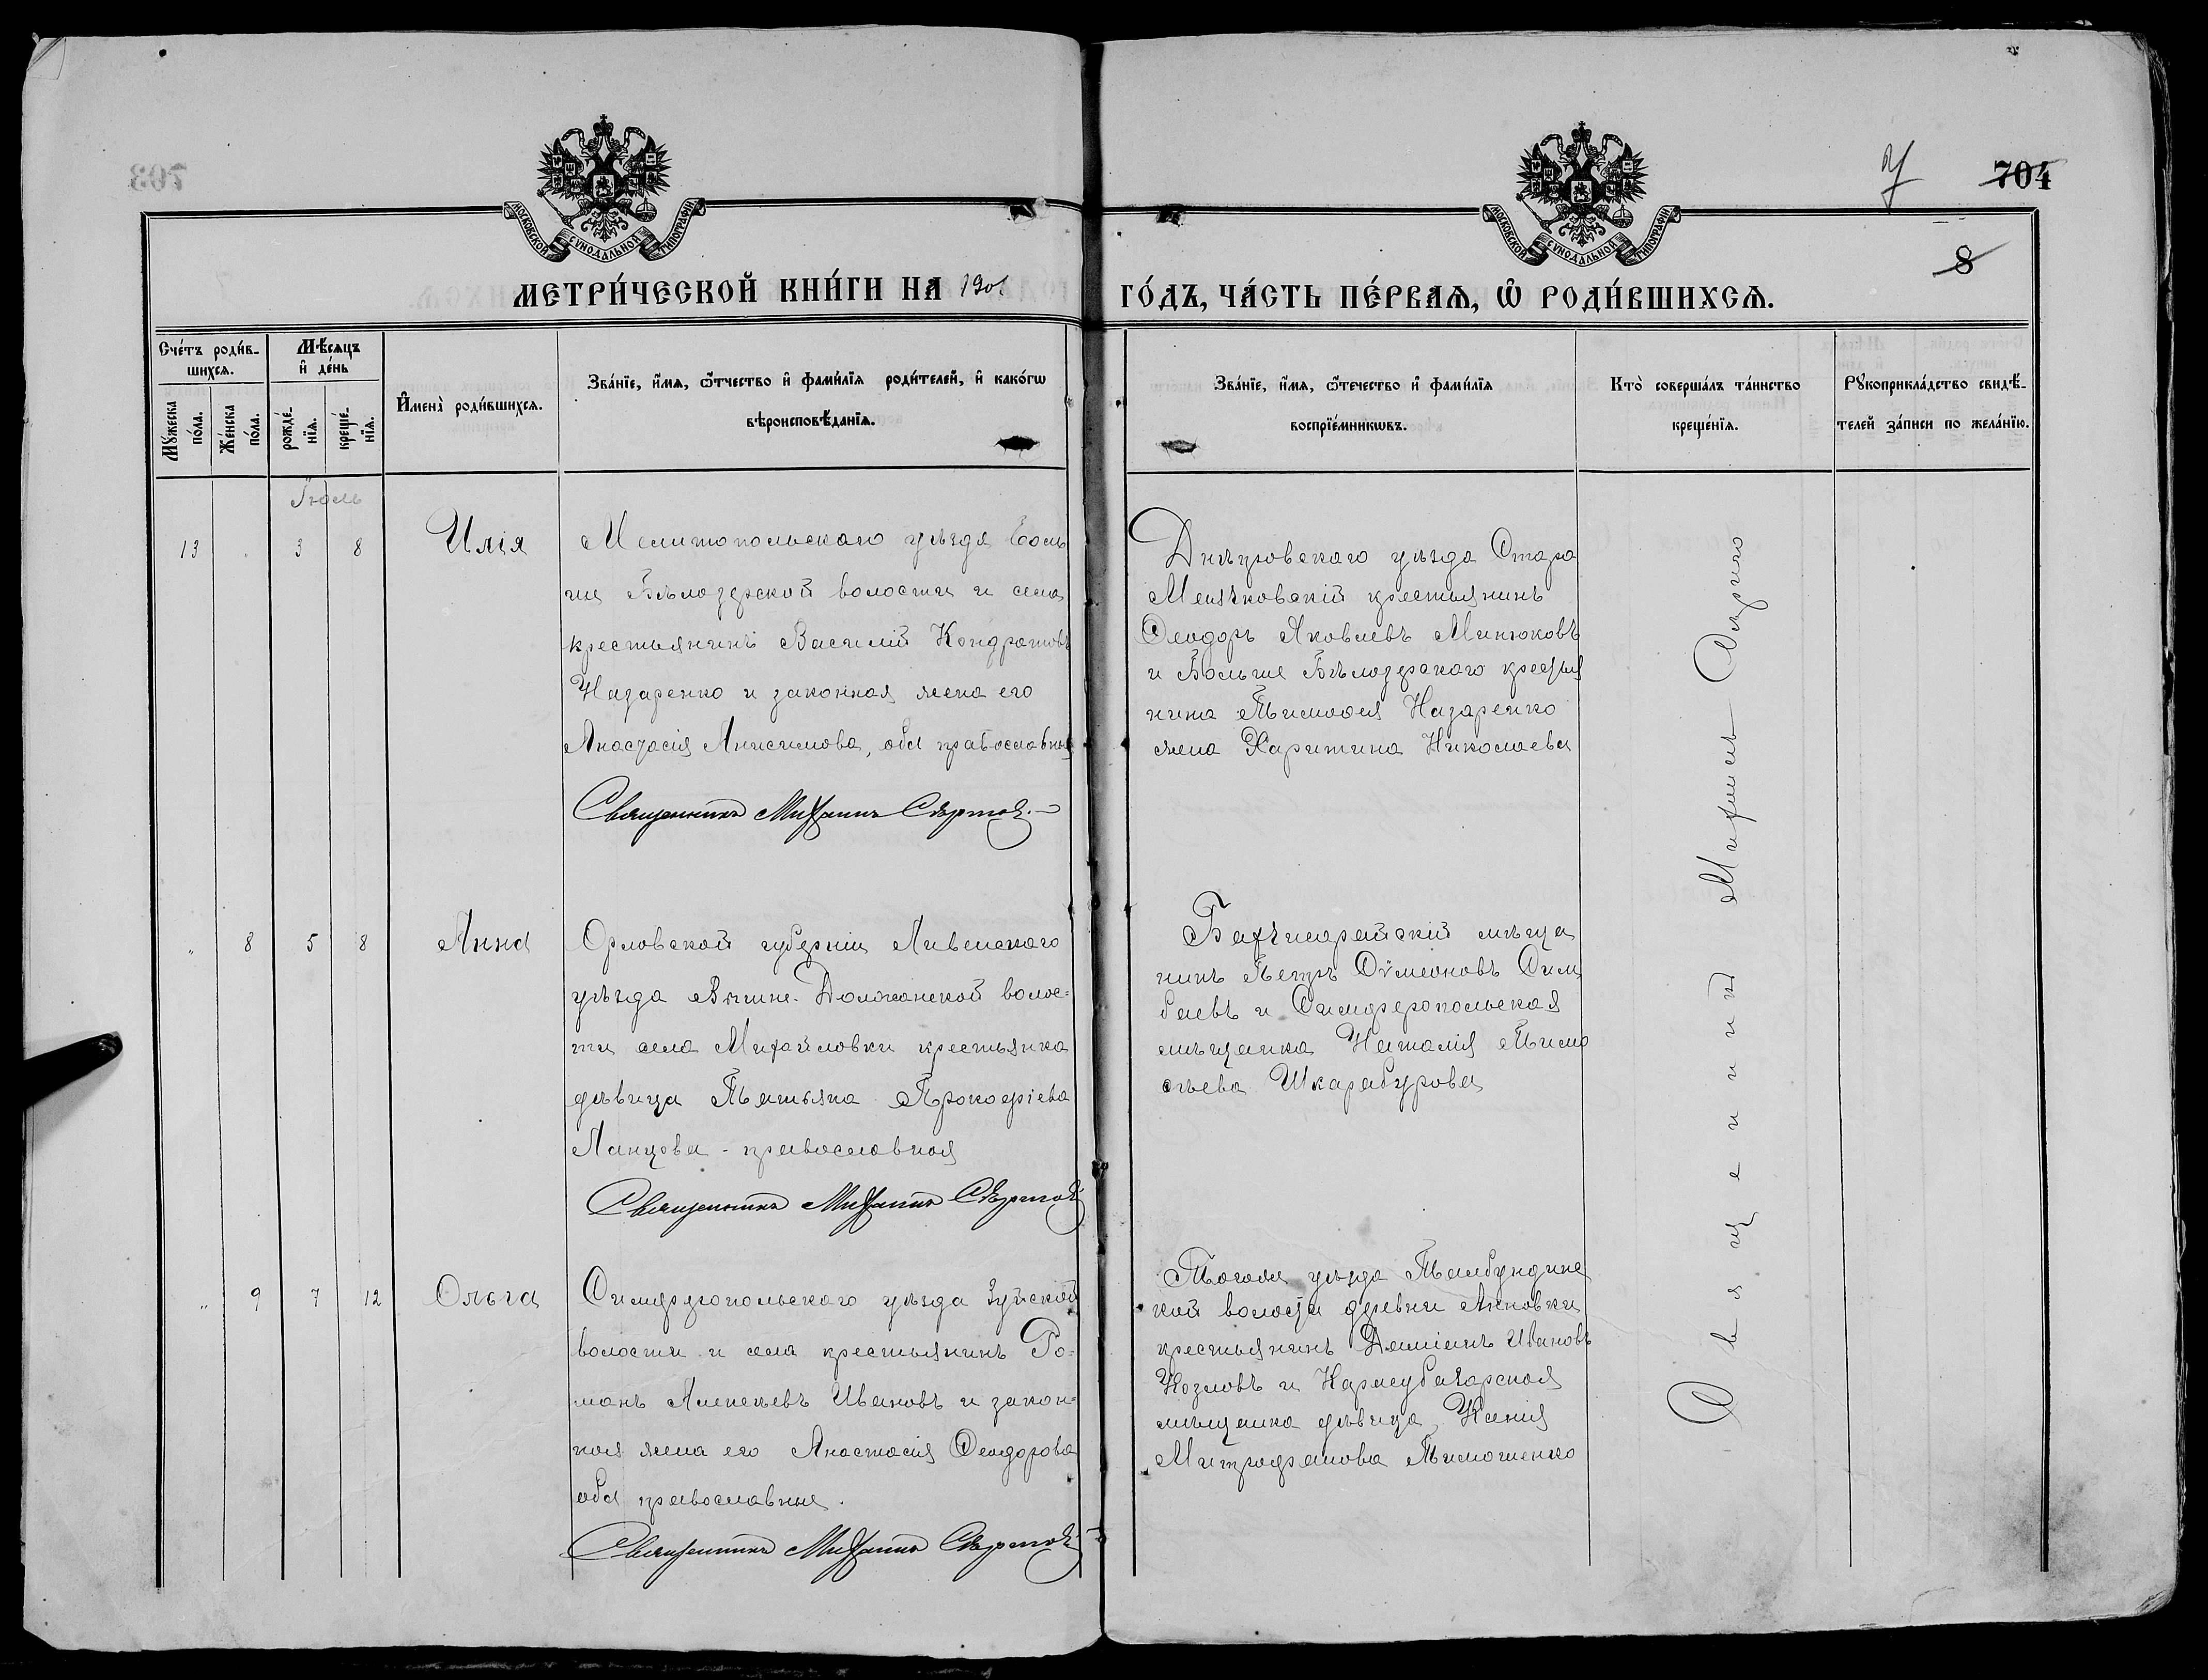 703
7
704
8
МОСКОВСКОЙ СѴНОДАЛЬНОЙ ТИПОГРАФІИ
МОСКОВСКОЙ СѴНОДАЛЬНОЙ ТИПОГРАФІИ
МЕТРИ́ЧЕСКОЙ КНИ́ГИ НА 1901 ГО́ДЪ, ЧА́СТЬ ПЕ́РВАѦ, Ѽ РОДИ́ВШИХСѦ.
Сче́тъ роди́в-
шихсѧ.
Мꙋжеска по́ла.
Же́нска по́ла.
Мѣ́сѧцъ и҆ де́нь
рожде́-нїѧ.
креще́-нїѧ.
И҆мена̀ роди́вшихсѧ.
Зва́нїе, и҆́мѧ, ѻ҆́тчество и҆ фами́лїѧ роди́телей, и҆ како́гѡ
вѣроисповѣ́данїѧ.
Зва́нїе, и҆́мѧ, ѻ҆те́чество и҆ фами́лїѧ
воспрїе́мникѡвъ.
Кто̀ соверша́лъ та́инство
креще́нїѧ.
Рꙋкоприкла́дство свидѣ́-
телей за́писи по жела́нїю.
Іюль
13 3 8 Илія
Мелитопольскаго уѣзда Боль
ше Бѣлозерской волости и села
крестьянинъ Василій Кондратовъ
Назаренко и законная жена его
Анастасія Анисимова, оба православные
Священникъ Михаилъ
Днѣпровскаго уѣзда Старо
крестьянинъ
Ѳеодоръ Яковлевъ Минюковъ
и Больше Бѣлозерскаго крестья
нина Тимоѳея Назаренко
жена Харитина Николаева
" 8 5 8 Анна
Орловской губерніи Ливенскаго
уѣзда Вышне-Должанской волос-
ти села Михайловки крестьянка
дѣвица Татьяна Прокофіева
Ланцева - православная
Священникъ Михаилъ
Бахчисарайскій мѣща
нинъ Петръ Сѵмеоновъ Сим
баевъ и Симферопольская
мѣщанка Наталія Тимо
ѳѣева Шкарабурова
" 9 7 12 Ольга
Симферопольскаго уѣзда Зуйской
волости и села крестьянинъ Ро-
манъ Алексѣевъ Ивановъ и закон-
ная жена его Анастасія Ѳеодорова
оба православные.
Священникъ Михаилъ
Тогоже уѣзда
кой волости деревни Анновки
крестьянинъ Даміанъ Ивановъ
Козловъ и Карасубазарская
мѣщанка дѣвица Ксенія
Митрофанова Тимошенко
Священникъ Михаилъ